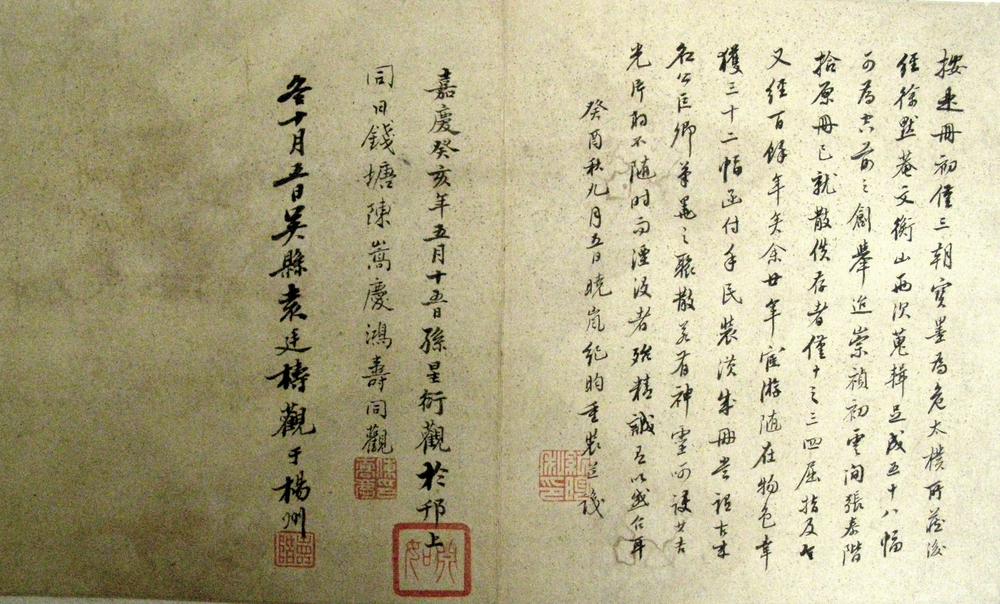 按是冊初僅三朝寶墨為危太樸所藏後
經徐默菴文衡山兩次蒐輯足成五十八幅
可為古前之創舉迨崇禎初雲間張泰階
拾原冊已就散佚存者僅十之三四屈指及今
又經百餘年矣余廿年宦游隨在物色幸
獲三十二幅函付手民裝潢成冊嘗謂古來
名公巨卿筆墨之聚散若有神靈呵護其吉
光片羽不隨時而湮沒者殆精誠有以感召耳
癸酉秋九月五日曉嵐紀昀重裝並識
嘉慶癸亥年五月十五日孫星衍觀於邗上
同日錢塘陳嵩慶鴻壽同觀
冬十月五日吳縣袁廷檮觀于楊州